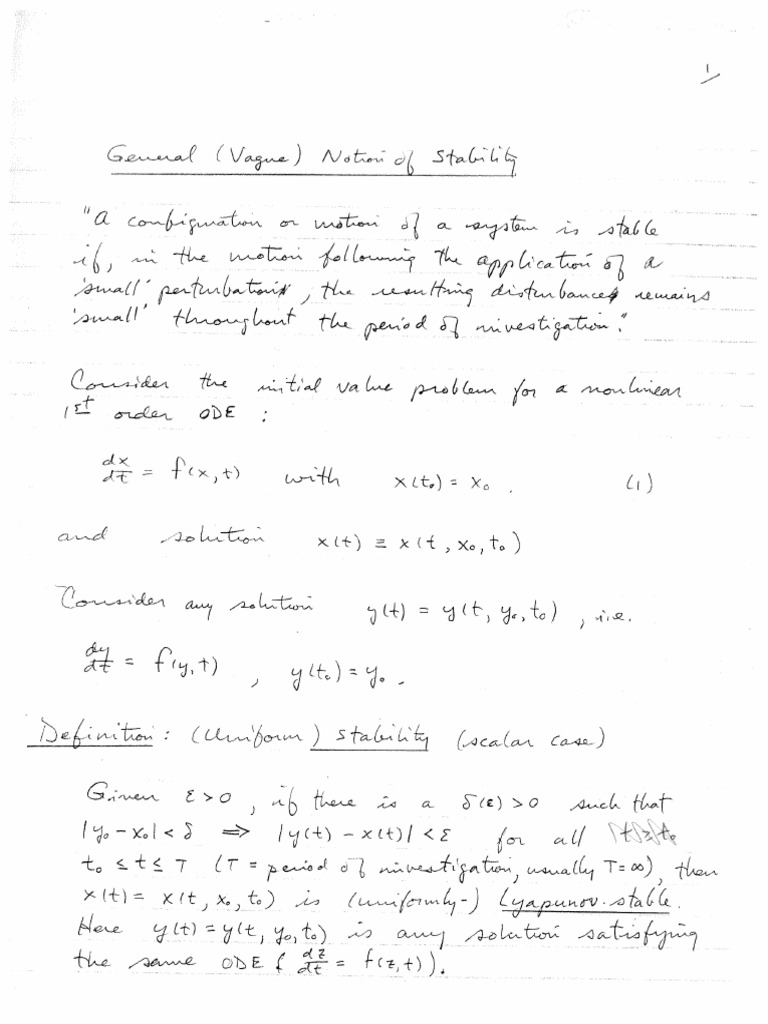 1
General (Vague) Notion of Stability
"A configuration or motion of a system is stable
if, in the motion following the application of a
'small' perturbation, the resulting disturbance remains
'small' throughout the period of investigation."
Consider the initial value problem for a nonlinear
1st order ODE :
dx/dt = f(x,t) with x(t₀) = x₀ . (1)
and solution x(t) ≡ x(t, x₀, t₀)
Consider any solution y(t) = y(t, y₀, t₀) , i.e.
dy/dt = f(y,t) , y(t₀) = y₀ .
Definition : (Uniform) Stability (scalar case)
Given ε > 0 , if there is a δ(ε) > 0 such that
|y₀ - x₀| < δ ⇒ |y(t) - x(t)| < ε for all
t₀ ≤ t ≤ T (T = period of investigation, usually T = ∞), then
x(t) = x(t, x₀, t₀) is (uniformly-) Lyapunov-stable.
Here y(t) = y(t, y₀, t₀) is any solution satisfying
the same ODE ( dz/dt = f(z,t) ).